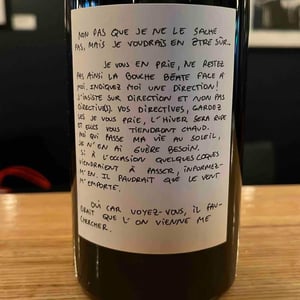 NON PAS QUE JE NE LE SACHE
PAS, MAIS JE VOUDRAIS EN ÊTRE SÛR..
JE VOUS EN PRIE, NE RESTEZ
PAS AINSI LA BOUCHE BÉATE FACE À
MOI, INDIQUEZ MOI UNE DIRECTION!
J'INSISTE SUR DIRECTION ET NON PAS
DIRECTIVES, VOS DIRECTIVES, GARDEZ
LES JE VOUS PRIE, L'HIVER SERA RUDE
ET ELLES VOUS TIENDRONT CHAUD.
MOI QUI PASSE MA VIE AU SOLEIL,
JE N'EN AI GUÈRE BESOIN.
SI À L'OCCASION QUELQUES COQUES
VIENDRAIENT À PASSER, INFORMEZ-
M'EN. IL FAUDRAIT QUE LE VENT
M'EMPORTE.
OUI CAR VOYEZ-VOUS, IL FAU-
DRAIT QUE L'ON VIENNE ME
CHERCHER.